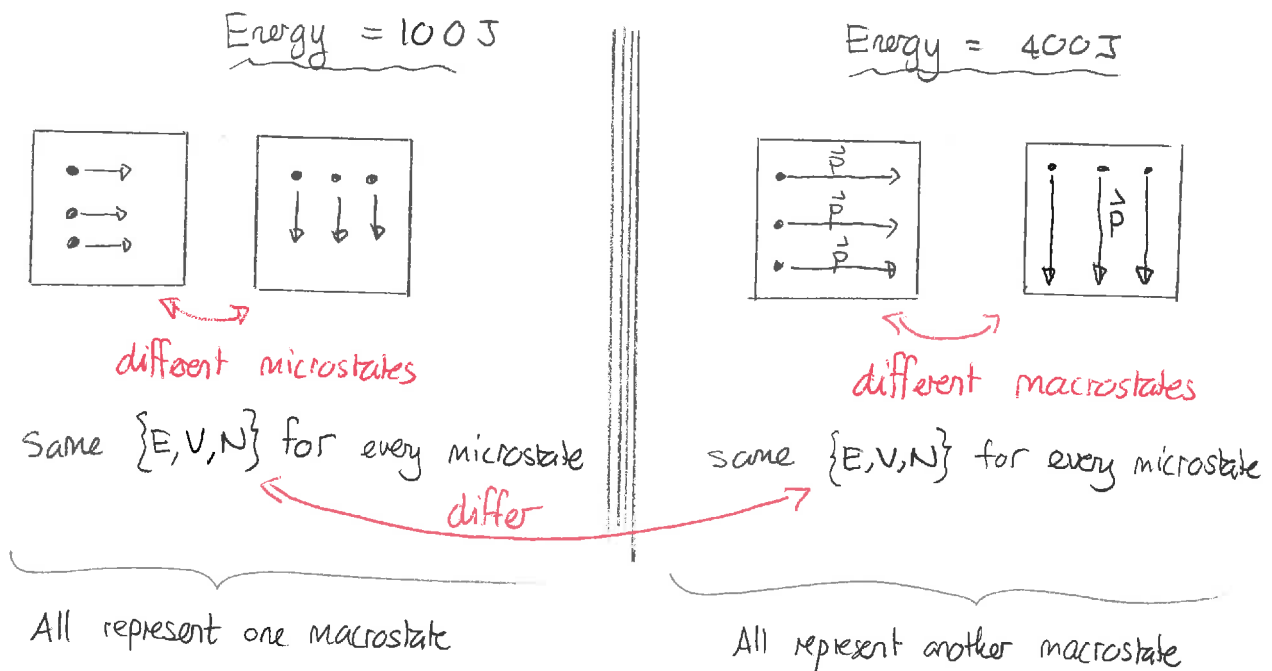 Energy = 100J
different microstates
same {E,V,N} for every microstate
All represent one macrostate
differ
Energy = 400J
p⃗
p⃗
p⃗
p⃗
different macrostates
same {E,V,N} for every microstate
All represent another macrostate